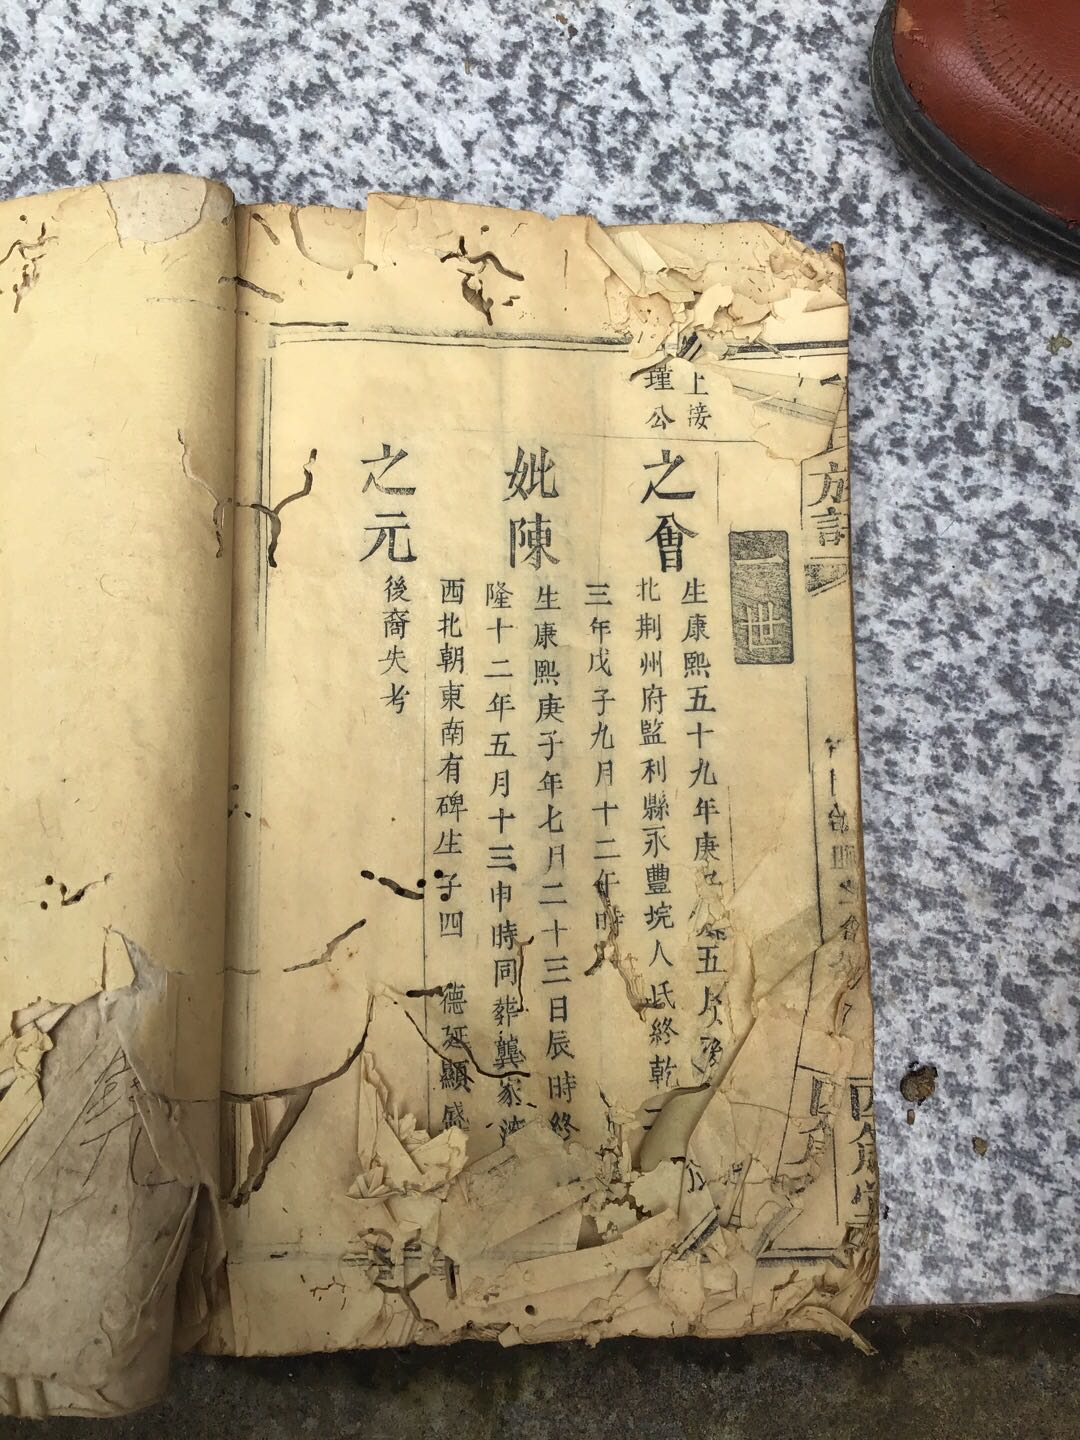 族譜
一世
上接
瑾公
之會
生康熙五十九年庚
五
北荆州府監利縣永豐垸人氏終乾
三年戊子九月十二午時
妣陳
生康熙庚子年七月二十三日辰時終
隆十二年五月十三申時同葬龔家
西北朝東南有碑生子四 德延顯盛
之元
後裔失考